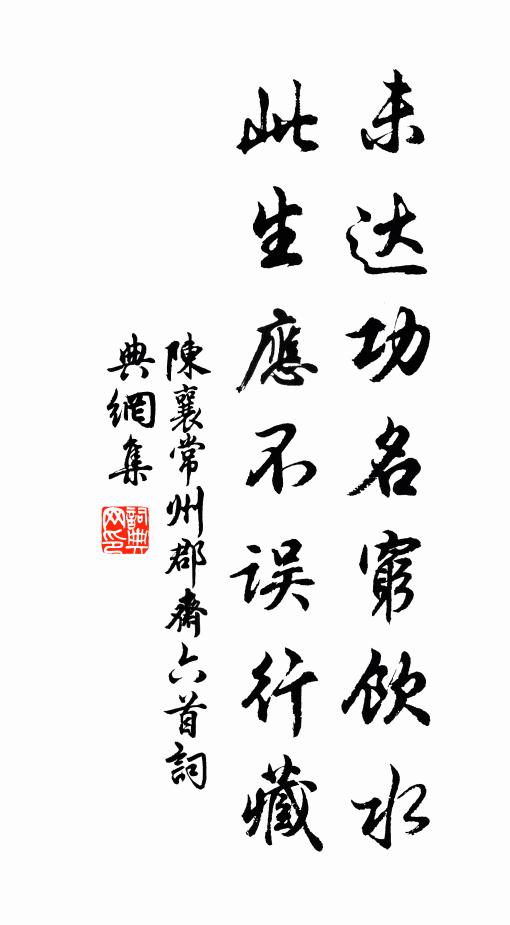 未达功名穷饮水
此生應不误行藏
陳襄常州郡齋六首詞
典網集
詞典
网印